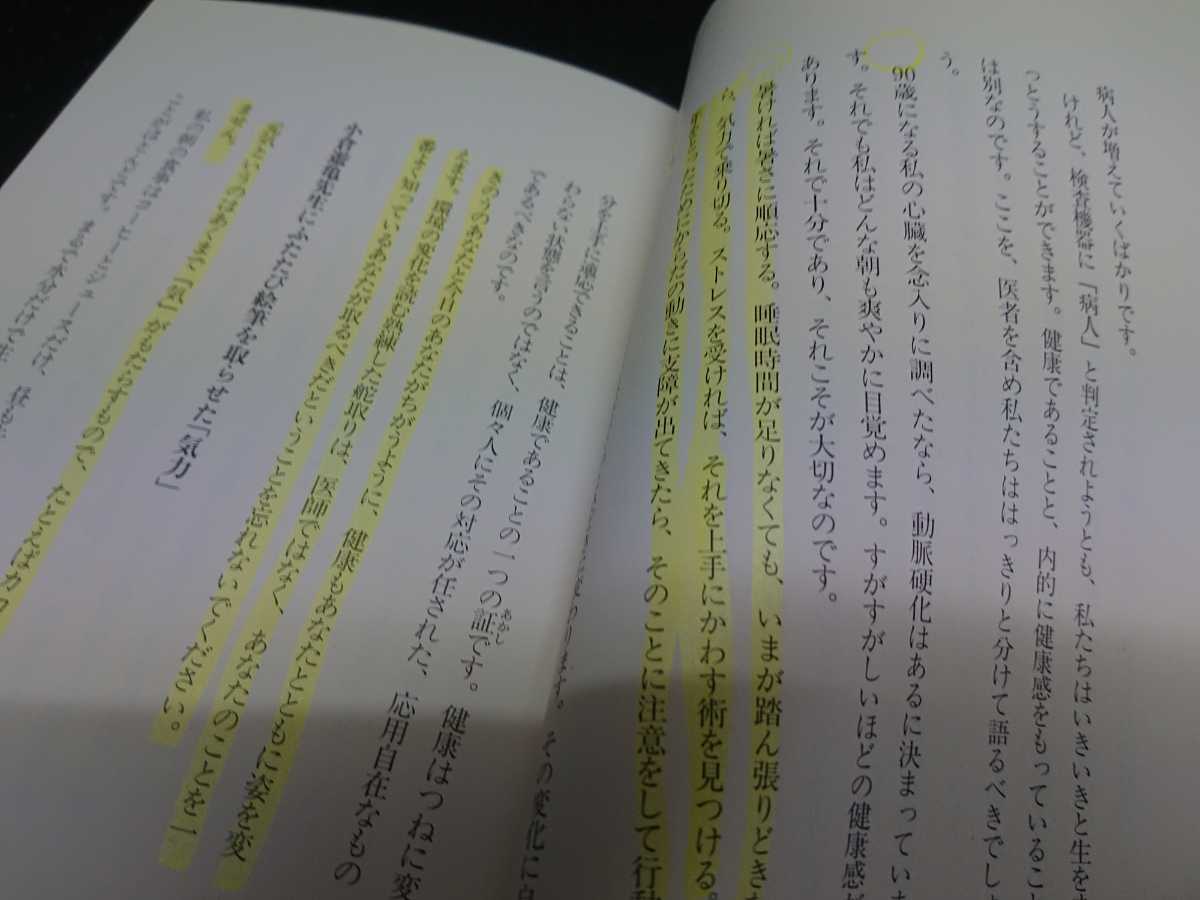 病人が増えていくばかりです。
けれど、検査機器に「病人」と判定されようとも、私たちはいきいきと生を
っとうすることができます。健康であることと、内的に健康感をもっていること
は別なのです。ここを、医者を含め私たちははっきりと分けて語るべきでしょ
う。
90歳になる私の心臓を念入りに調べたなら、動脈硬化はあるに決まっていま
す。それでも私はどんな朝も爽やかに目覚めます。すがすがしいほどの健康感が
あります。それで十分であり、それこそが大切なのです。
暑ければ暑さに順応する。睡眠時間が足りなくても、いまが踏ん張りどき
ら、気力で乗り切る。ストレスを受ければ、それを上手にかわす術を見つける。
からだの動きに支障が出てきたら、そのことに注意をして行動
その変化に
に適応できることは、健康であることの一つの証です。健康はつねに変
あかし
わらない状態を言うのではなく、個々人にその対応が任された、応用自在なもの
であるべきなのです。
きのうのあなたと今日のあなたがちがうように、健康もあなたとともに姿を変
えます。環境の変化を読む熟練した舵取りは、医師ではなく、あなたのことを一
番よく知っているあなたが取るべきだということを忘れないでください。
小倉遊亀先生にふたたび絵筆を取らせた「気力」
元気というのはあくまで「気」がもたらすもので、たとえば
私の朝の食事はコーヒーとジュースだけ、